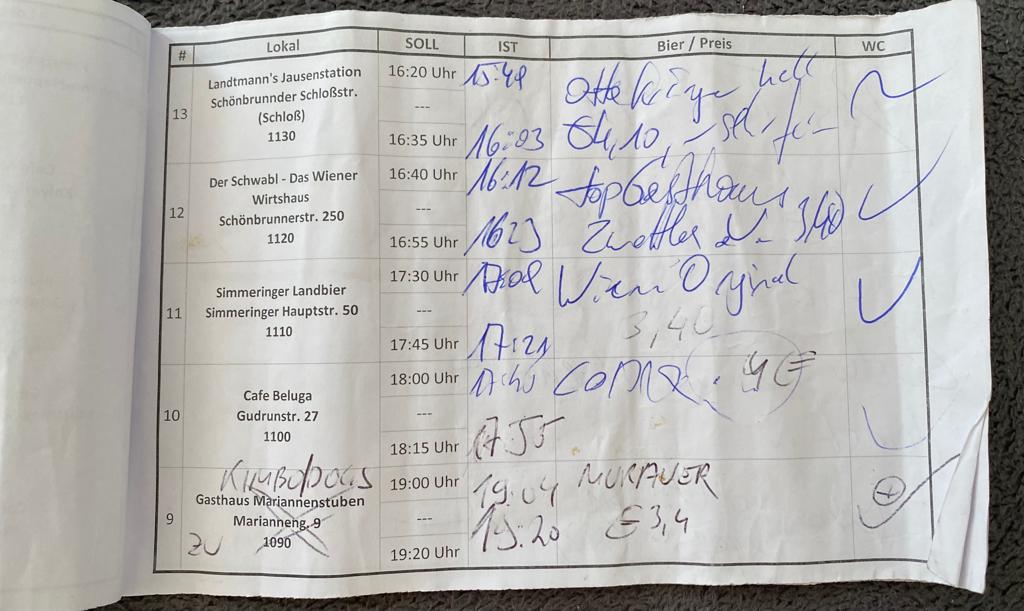 # Lokal SOLL IST Bier / Preis WC
13 Landtmann's Jausenstation
Schönbrunnder Schloßstr.
(Schloß)
1130
16:20 Uhr
---
16:35 Uhr
15:49
16:03
hell
€4,10,- sehr fein
12 Der Schwabl - Das Wiener
Wirtshaus
Schönbrunnerstr. 250
1120
16:40 Uhr
---
16:55 Uhr
16:12
1623
top Gasthaus
Zwettler 3,40
11 Simmeringer Landbier
Simmeringer Hauptstr. 50
1110
17:30 Uhr
---
17:45 Uhr
17:08
17:21
Wiener Original
3,40
10 Cafe Beluga
Gudrunstr. 27
1100
18:00 Uhr
---
18:15 Uhr
17:40
17:55
4€
9 Gasthaus Mariannenstuben
Marianneng. 9
1090
ZU
19:00 Uhr
---
19:20 Uhr
19:04
19:20
MURAUER
€3,4